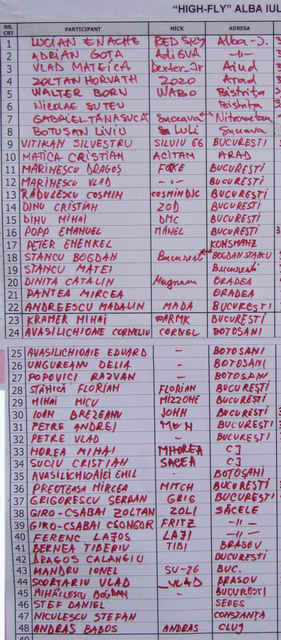 "HIGH-FLY" ALBA IUL
NR. CRT PARTICIPANT NICK ADRESA
1 LUCIAN ENACHE RED SKY Alba-J.
2 ADRIAN GOTA AdiGVA —"—
3 VLAD MATEICA Dexter_Jr Aiud
4 ZOLTAN HORVATH ZOZO Arad
5 WALTER BORN WABO Bistrița
6 Nicolae SUTEU Bistrița
7 GABRIEL TANASUCĂ Suceava Nitrometan
8 BOTUȘAN LIVIU Luli Suceava
9 VITIKAN SILVESTRU SILVIU 66 BUCUREȘTI
10 MATICA CRISTIAN ACITAN ARAD
11 MARINESCU DRAGOȘ FOXE BUCUREȘTI
12 MARINESCU VLAD -"- BUCUREȘTI
13 RĂDULESCU COSMIN COSMINDJC BUCUREȘTI
14 DINU CRISTIAN ZOD BUCUREȘTI
15 DINU MIHAI DMC BUCUREȘTI
16 POPP EMANUEL MANEL BUCUREȘTI
17 PETER EHENKEL KONSTANZ
18 STANCU BOGDAN București BOGDAN STANCU
19 STANCU MATEI București
20 DINITA CATALIN Magnum ORADEA
21 PANTEA MIRCEA ORADEA
22 ANDREESCU MADALIN MADA BUCUREȘTI
23 KRAMER MIHAI WARMK BUCUREȘTI
24 AVASILICHIOAIE CORNELIU CORNEL BOTOȘANI
25 AVASILICHIOAIE EDUARD - BOTOȘANI
26 UNGUREANU DELIA - BOTOȘANI
27 POPOVICI RAZVAN - BOTOȘANI
28 STANICĂ FLORIAN FLORIAN BUCUREȘTI
29 MIHAI MICU MIZZONE BUCUREȘTI
30 IOAN BREZEANU JOHN BUCUREȘTI
31 PETRE ANDREI BUCUREȘTI
32 PETRE VLAD — BUCUREȘTI
33 HOREA MIHAI MIHOREA CJ
34 SUCIU CRISTIAN SACEA CJ
35 AVASILICHIOAIEI EMIL BOTOȘANI
36 PREOTEASA MIRCEA MITCH BUCUREȘTI
37 GRIGORESCU SERBAN GRIG BUCUREȘTI
38 GIRO-CSABAI ZOLTAN ZOLI SĂCELE
39 GIRO-CSABAI CSONGOR FRITZ -"-
40 FERENC LAJOS LAJI -"-
41 BERNEA TIBERIU TIBI BRASOV
42 DRAGOS CALANGIU BUCURESTI
43 MANDRU IONEL SU-26 BUC.
44 SCORTARIU VLAD _VLAD BRASOV
45 MIHAILESCU BOGDAN BUCUREȘTI
46 STEF DANIEL SEBES
47 NICULESCU STEFAN CONSTANȚA
48 ANDRAS BABOS ANDRAS CLUJ